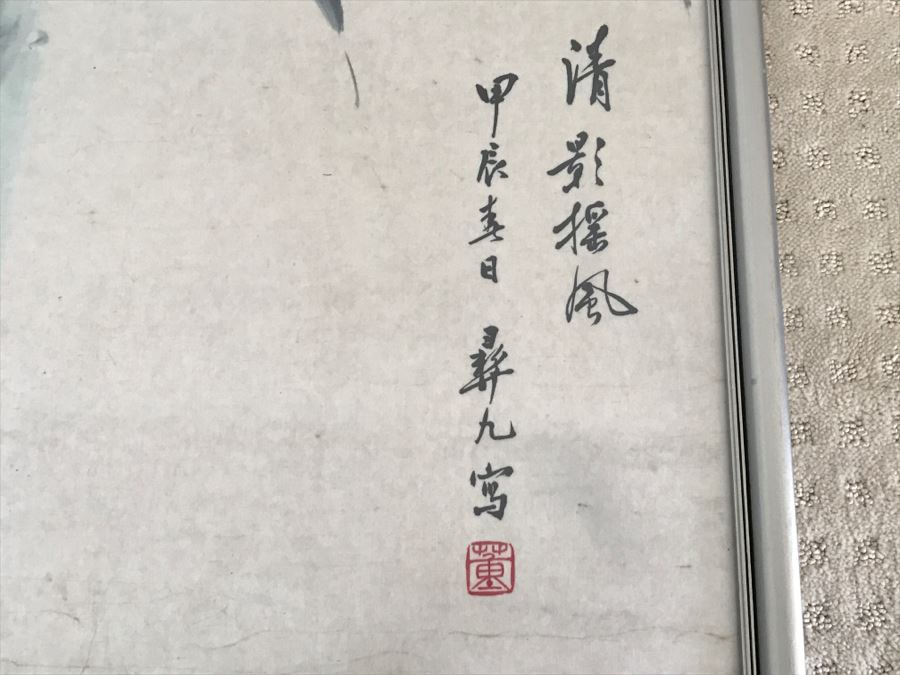 清影摇風
甲辰春日 彛九寫
董